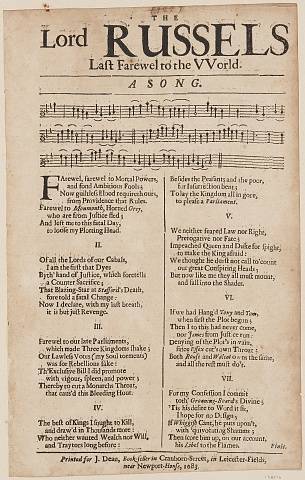 THE
Lord RUSSELS
Last Farewel to the VVorld.
A SONG.
Farewel, farewel to Mortal Powers,
and fond Ambitious Fools;
Now guiltless Blood requires hours,
from Providence that Rules.
Farewel to Monmouth, Horned Grey,
who are from Justice fled;
And left me to this fatal Day,
to loose my Plotting Head.
II.
Of all the Lords of our Cabals,
I am the first that Dyes
By th' hand of Justice, which foretells
a Counter Sacrifice;
That Blazing-Star at Stafford's Death,
foretold a fatal Change:
Now I declare, with my last breath,
it is but just Revenge.
III.
Farewel to our late Parliaments,
which made Three Kingdoms shake;
Our Lawless Votes (my Soul torments)
was for Rebellions sake:
Th' Exclusive Bill I did promote
with vigour, spleen, and power;
Thereby to cut a Monarch Throat,
that caus'd this Bleeding Hour.
IV.
The best of Kings I sought to Kill,
and draw'd in Thousands more:
Who neither wanted Wealth nor Will,
and Traytors long before:
Besides the Peasants and the poor,
for Insurrection bent;
To lay the Kingdom all in gore,
to please a Parliament.
V.
We neither feared Law nor Right,
Prerogative nor Fate;
Impeached Queen and Duke for spight,
to make the King afraid:
We thought he durst not call to'count
our great Conspiring Heads;
But now like me they all must mount,
and fall into the Shades.
VI.
If we had Hang'd Tony and Tom,
when first the Plot begun;
Then I to this had never come,
nor James from Justice run:
Denying of the Plot's in vain,
since Essex cut's own Throat:
Both Rouse and Walcot own the same,
and all the rest must do't.
VII.
For my Confession I commit
to th' Groaning-Board's Divine;
'Tis his desire to Word it fit,
I hope for no Design;
If Whiggish Cant, he put upon't,
with 'quivocating Shams;
Then score him up, on our account,
his Libel to the Flames.
Finis.
Printed for J. Dean, Bookseller in Cranborn-Street, in Leicester-Fields,
near Newport-House, 1683.